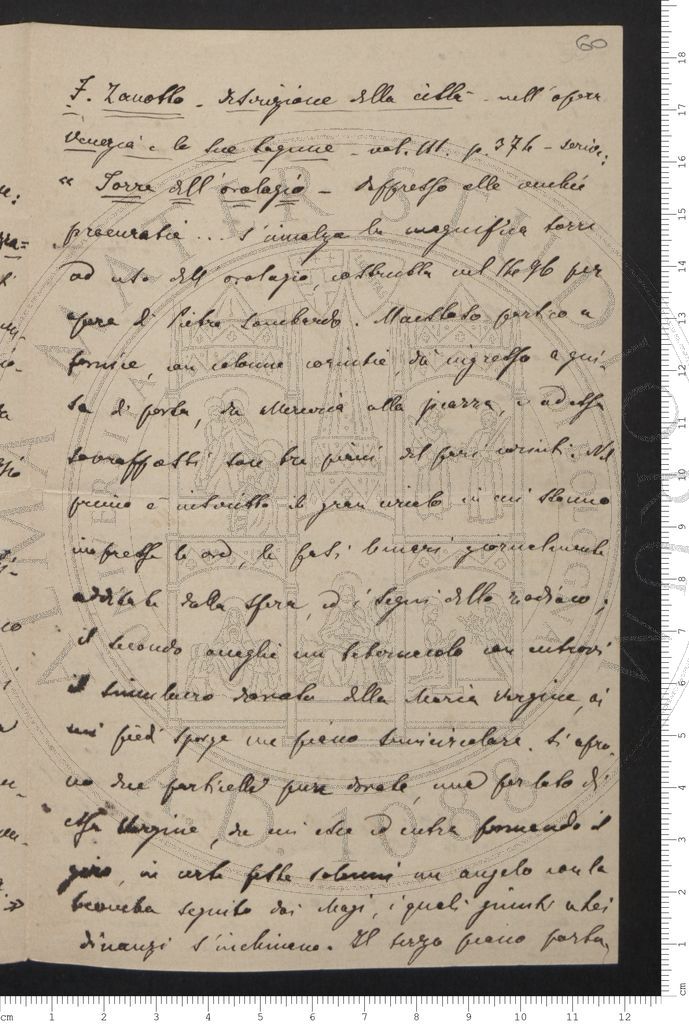 60
F. Zanotto - descrizione della città - nell'opera
Venezia e le sue lagune - vol. III. p. 376 - scrive:
" Torre dell'orologio - Dappresso alle vecchie
procuratie ... s'innalza la magnifica torre
ad uso dell'orologio, costrutta nel 1496 per
opera di Pietro Lombardo. Maestoso portico a
fornice, con colonne corintie, dà ingresso a gui-
sa di porta, da Merceria alla piazza, e ad essa
sovrapposti sono tre piani del pari corinti. Nel
primo è introdotto il gran circolo in cui stanno
impresse le ore, le fasi lunari giornalmente
additate dalla sfera, ed i segni dello zodiaco;
il secondo accoglie un tabernacolo con entrovi
il simulacro dorato della Maria Vergine, ai
cui piedi sporge un piano semicircolare. Si apro-
no due porticelle pure dorate, una per lato di
essa Vergine, da cui esce ed entra formando il
giro, in certe feste solenni un angelo con la
tromba seguito dai Magi, i quali giunti a lei
dinanzi s'inchinano. Il terzo piano porta,